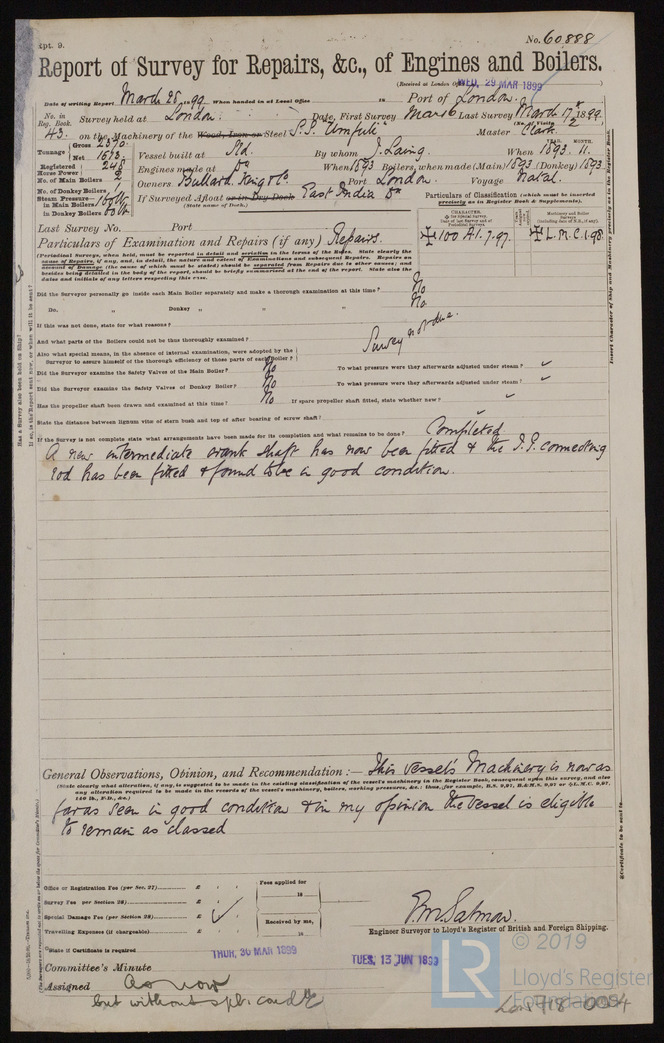 Rpt. 9.
No. 60888
Report of Survey for Repairs, &c., of Engines and Boilers.
(Received at London Office WED. 29 MAR 1899
Date of writing Report March 28 1899 When handed in at Local Office 18 Port of London.
No. in Reg. Book. 43. Survey held at London. Date, First Survey Mar 16 Last Survey March 17th 1899
(No. of Visits 2
on the Machinery of the Wood, Iron or Steel S.S. Umfuli Master Clark.
Tonnage Gross 2370. Net 1513
Vessel built at Sld. By whom J. Laing. When 1893. 11.
YEAR. MONTH.
Registered Horse Power 248
Engines made at Do When 1893 Boilers, when made (Main) 1893 (Donkey) 1893
No. of Main Boilers 2
Owners Bullard King & Co. Port London. Voyage Natal.
No. of Donkey Boilers 1
Steam Pressure— in Main Boilers 160 lb
in Donkey Boilers
If Surveyed Afloat or in Dry Dock East India Dk
(State name of Dock.)
Particulars of Classification (which must be inserted precisely as in Register Book & Supplements).
CHARACTER.
Machinery and Boiler Surveys
Last Survey No. Port
✠100 A1. 7.97. ✠L.M.C. 1.98.
Particulars of Examination and Repairs (if any) Repairs.
(Periodical Surveys, when held, must be reported in detail and seriatim in the terms of the Rules. State clearly the
cause of Repairs, if any, and, in detail, the nature and extent of Examinations and subsequent Repairs. Repairs on
account of Damage (the cause of which must be stated) should be separated from Repairs due to other causes; and
besides being detailed in the body of the report, should be briefly summarised at the end of the report. State also the
dates and initials of any letters respecting this case.
Did the Surveyor personally go inside each Main Boiler separately and make a thorough examination at this time? No
Do. „ Donkey „ „ „ No
If this was not done, state for what reasons?
Survey not due.
And what parts of the Boilers could not be thus thoroughly examined?
Also what special means, in the absence of internal examination, were adopted by the
Surveyor to assure himself of the thorough efficiency of those parts of each Boiler?
Did the Surveyor examine the Safety Valves of the Main Boiler? No To what pressure were they afterwards adjusted under steam? ✓
Did the Surveyor examine the Safety Valves of Donkey Boiler? No To what pressure were they afterwards adjusted under steam? ✓
Has the propeller shaft been drawn and examined at this time? No If spare propeller shaft fitted, state whether new? ✓
State the distance between lignum vitæ of stern bush and top of after bearing of screw shaft? ✓
If the Survey is not complete state what arrangements have been made for its completion and what remains to be done? Completed
A new intermediate crank shaft has now been fitted & the I.P. connecting
rod has been fitted & found to be in good condition.
General Observations, Opinion, and Recommendation:— This vessel's Machinery is now as
(State clearly what alteration, if any, is suggested to be made in the existing classification of the vessel's machinery in the Register Book, consequent upon this survey, and also
any alteration required to be made in the records of the vessel's machinery, boilers, working pressures, &c.: thus, for example, B.S. 9,97, B.&M.S. 9,97 or ✠L.M.C. 9,97,
140 lb., F.D., &c.)
far as seen in good condition & in my opinion the vessel is eligible
to remain as classed
Office or Registration Fee (per Sec. 27) £
Fees applied for
18
Survey Fee per Section 28) £
Special Damage Fee (per Section 28) £ ✓
Received by me,
Travelling Expenses (if chargeable) £
18
P.M. Salmon.
Engineer Surveyor to Lloyd's Register of British and Foreign Shipping.
State if Certificate is required
THUR. 30 MAR 1899
TUES. 13 JUN 1899
Committee's Minute
Assigned As now
but without spl: condn
LR
© 2019
Lloyd's Register
Foundation
Lon 718-0054
Has a Survey also been held on Ship?
If so, is the Report sent now, or when will it be sent?
Insert Character of Ship and Machinery precisely as in the Register Book.
Certificate to be sent to